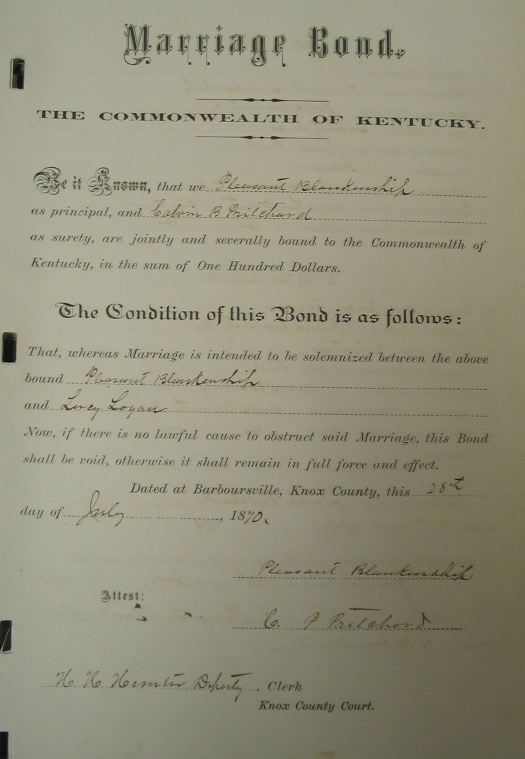 Marriage Bond.
THE COMMONWEALTH OF KENTUCKY.
Be it Known, that we Pleasant Blankenship
as principal, and Calvin B Pritchard
as surety, are jointly and severally bound to the Commonwealth of
Kentucky, in the sum of One Hundred Dollars.
The Condition of this Bond is as follows:
That, whereas Marriage is intended to be solemnized between the above
bound Pleasant Blankenship
and Lucy Logan
Now, if there is no lawful cause to obstruct said Marriage, this Bond
shall be void, otherwise it shall remain in full force and effect.
Dated at Barboursville, Knox County, this 28th
day of July, 1870.
Pleasant Blankenship
Attest:
C. P Pritchard
H. H. Deputy, Clerk
Knox County Court.